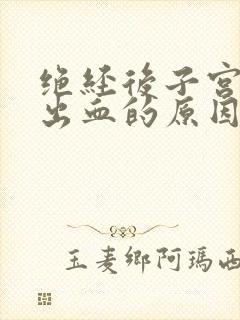 绝经後子宫
出血的原因
玉麦鄉阿瑪西